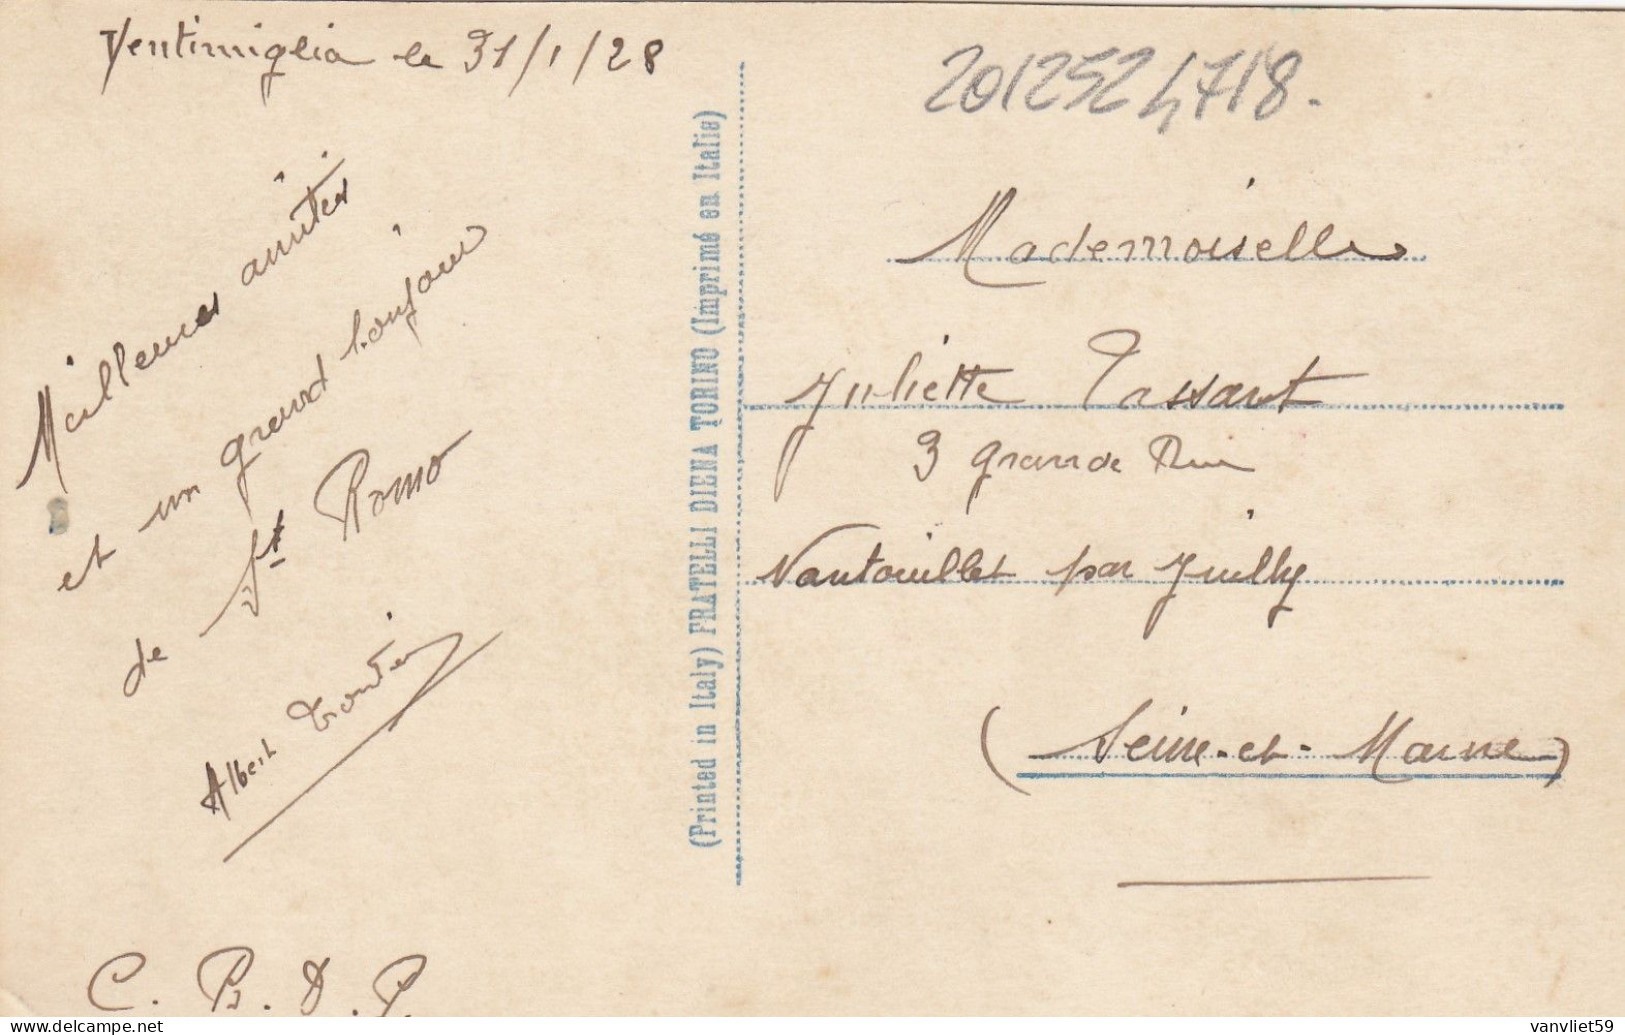 Ventimiglia le 31/1/28
Meilleures amitiés
et un grand bonjour
de St Romo
Albert
C. B. D. P.
(Printed in Italy) FRATELLI DIENA TORINO (Imprimé en Italie)
2012524718.
Mademoiselle
Juliette Tassart
3 grande Rue
Nantouillet par Juilly
(Seine-et-Marne)
delcampe.net
vanvliet59